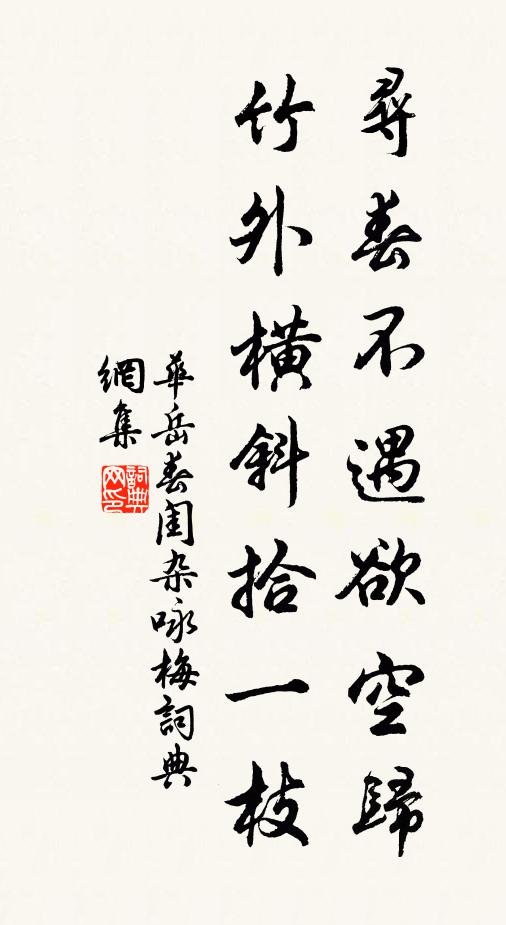 尋春不遇欲空歸
竹外橫斜拾一枝
華岳春閨杂咏梅詞典
網集
詞典网印